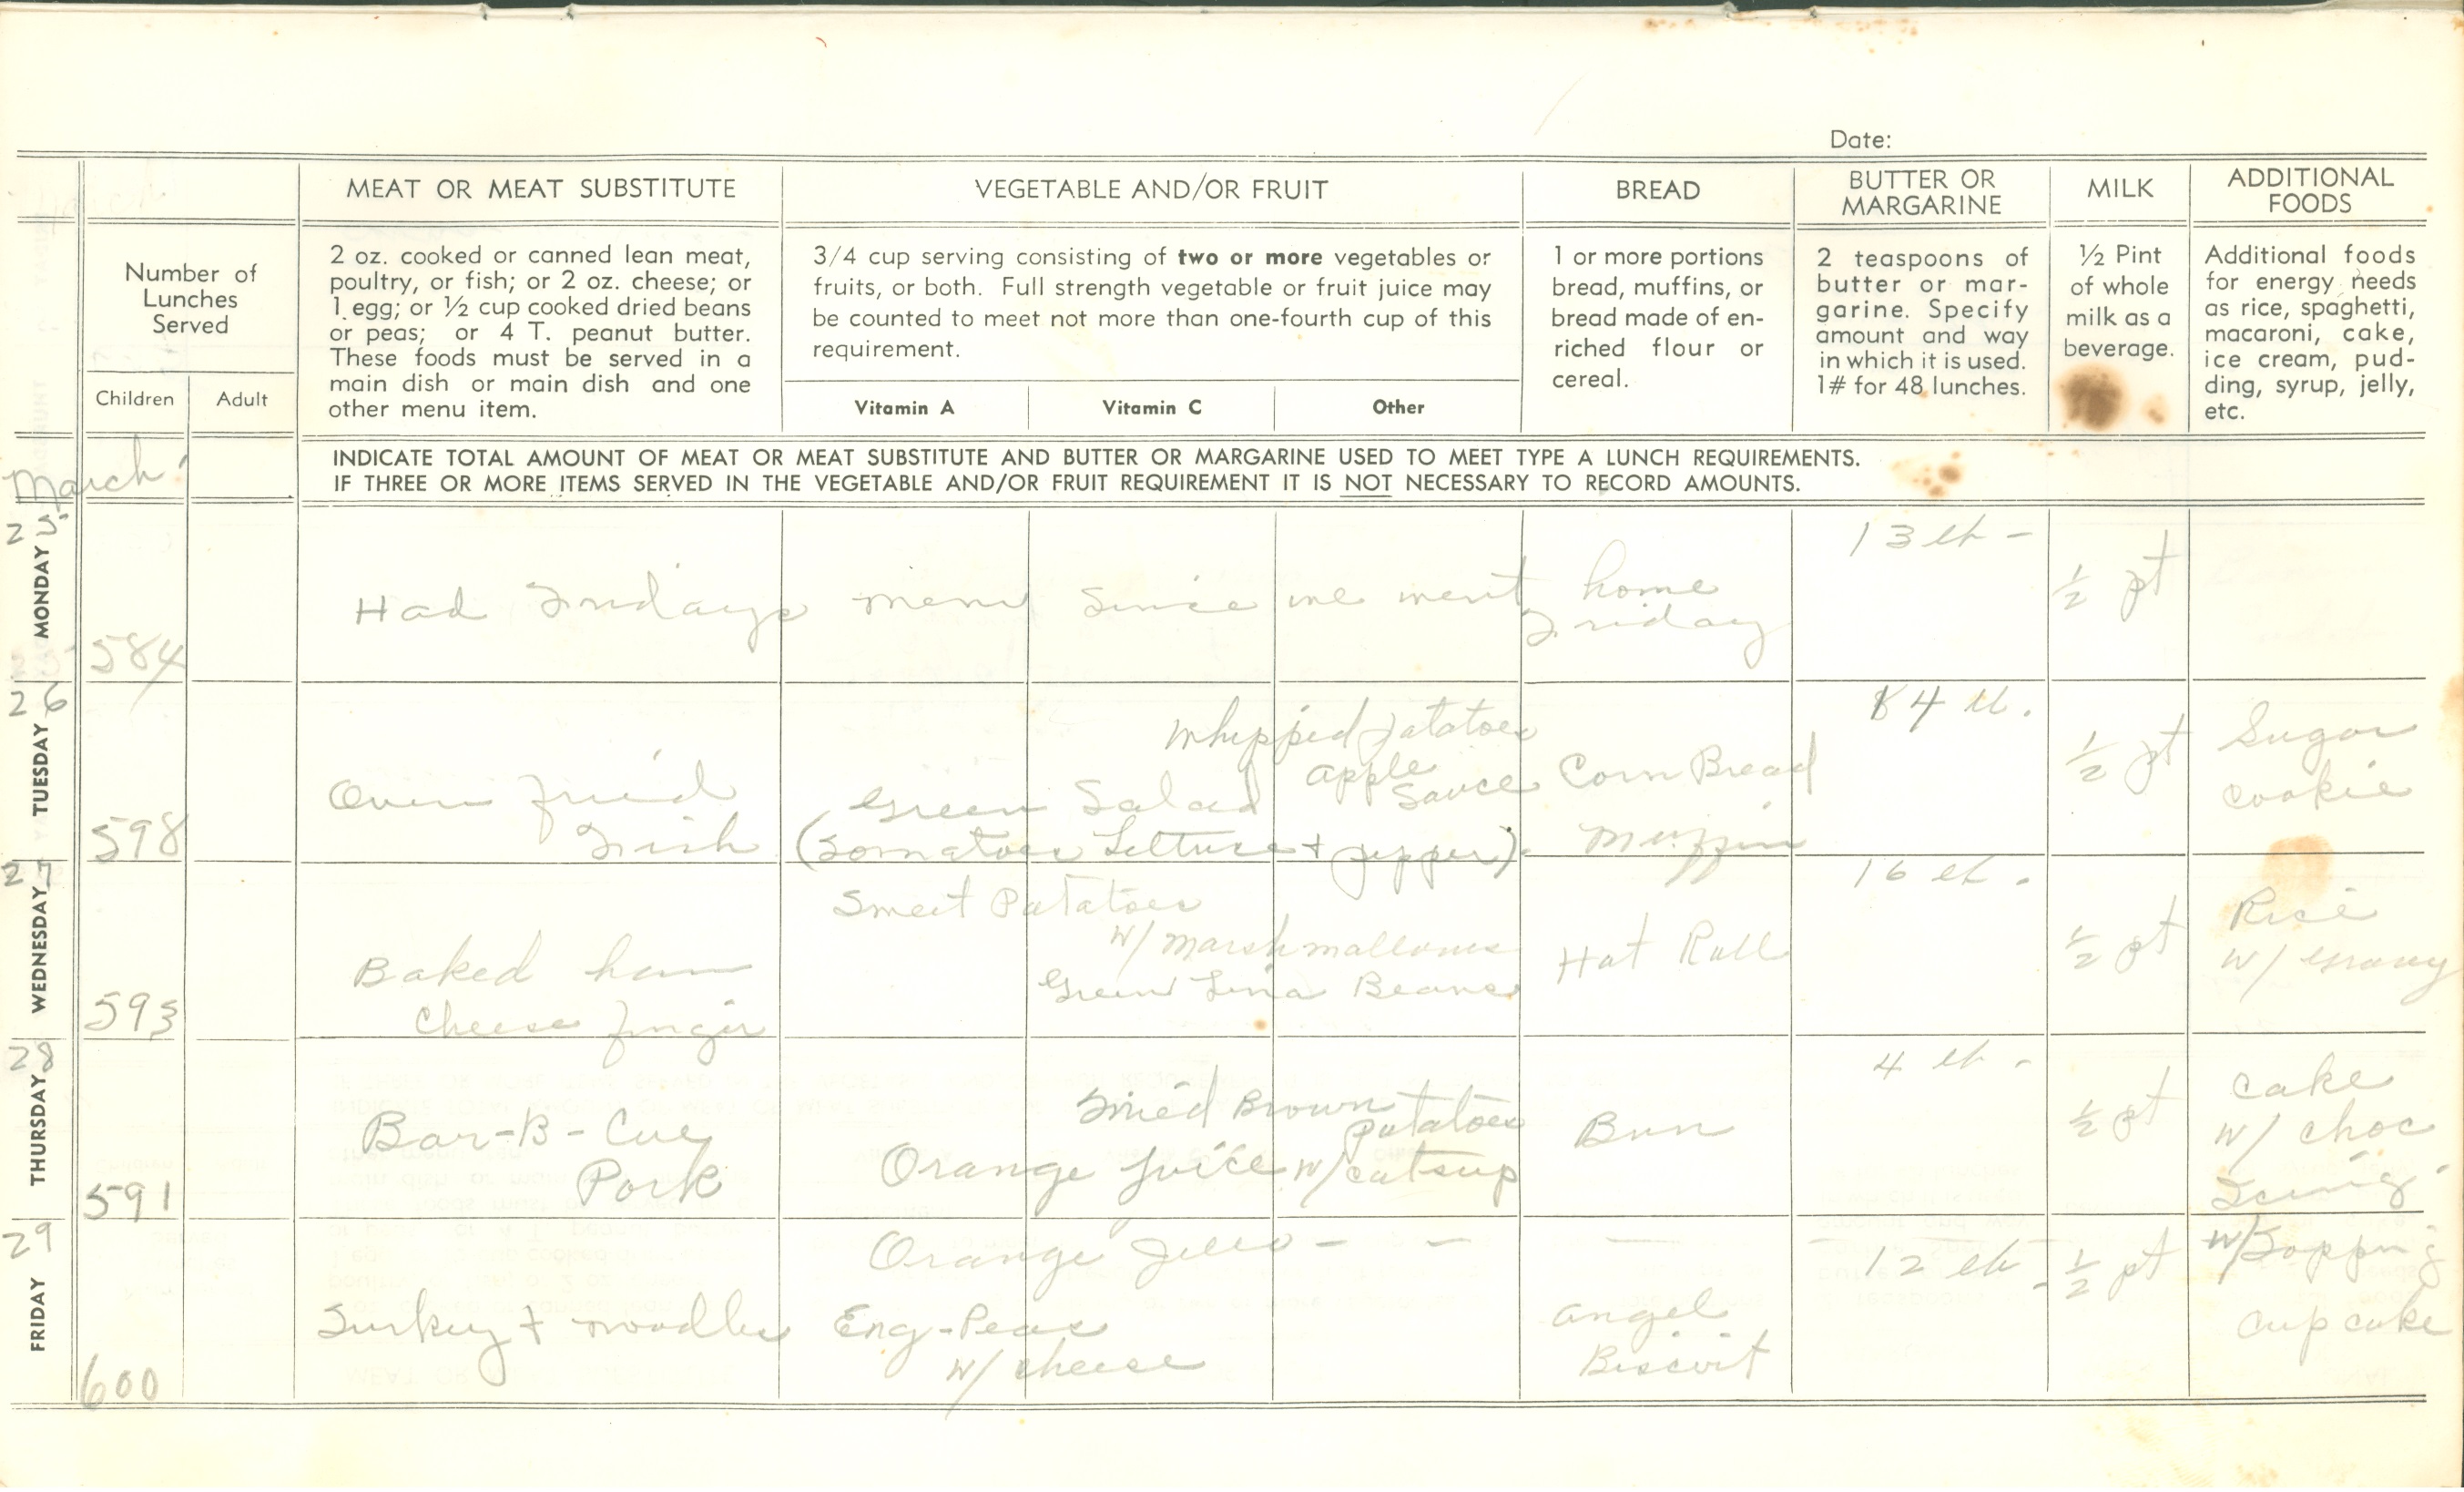 Date:
MEAT OR MEAT SUBSTITUTE
VEGETABLE AND/OR FRUIT
BREAD
BUTTER OR
MARGARINE
MILK
ADDITIONAL
FOODS
Number of
Lunches
Served
Children
Adult
2 oz. cooked or canned lean meat,
poultry, or fish; or 2 oz. cheese; or
1 egg; or ½ cup cooked dried beans
or peas; or 4 T. peanut butter.
These foods must be served in a
main dish or main dish and one
other menu item.
3/4 cup serving consisting of two or more vegetables or
fruits, or both. Full strength vegetable or fruit juice may
be counted to meet not more than one-fourth cup of this
requirement.
Vitamin A
Vitamin C
Other
1 or more portions
bread, muffins, or
bread made of en-
riched flour or
cereal.
2 teaspoons of
butter or mar-
garine. Specify
amount and way
in which it is used.
1# for 48 lunches.
½ Pint
of whole
milk as a
beverage.
Additional foods
for energy needs
as rice, spaghetti,
macaroni, cake,
ice cream, pud-
ding, syrup, jelly,
etc.
March
INDICATE TOTAL AMOUNT OF MEAT OR MEAT SUBSTITUTE AND BUTTER OR MARGARINE USED TO MEET TYPE A LUNCH REQUIREMENTS.
IF THREE OR MORE ITEMS SERVED IN THE VEGETABLE AND/OR FRUIT REQUIREMENT IT IS NOT NECESSARY TO RECORD AMOUNTS.
25
MONDAY
584
Had Fridays menu since we went home
Friday
13 lb -
½ pt
26
TUESDAY
598
Oven fried
Fish
Whipped Potatoes
Apple
Sauce
Green Salad
(Tomatoes Lettuce + pepper)
Corn Bread
Muffin
14 lb.
½ pt
Sugar
Cookie
27
WEDNESDAY
593
Baked ham
Cheese finger
Sweet Potatoes
w/ marshmallows
Green Lima Beans
Hot Roll
16 lb.
½ pt
Rice
w/ gravy
28
THURSDAY
591
Bar-B-Cue
Pork
Fried Brown
Potatoes
Orange Juice w/ catsup
Bun
4 lb -
½ pt
Cake
w/ choc
Icing
29
FRIDAY
600
Turkey + noodles
Orange Jello - -
Eng-Peas
w/ cheese
Angel
Biscuit
12 lb -
½ pt
w/ Topping
Cup cake